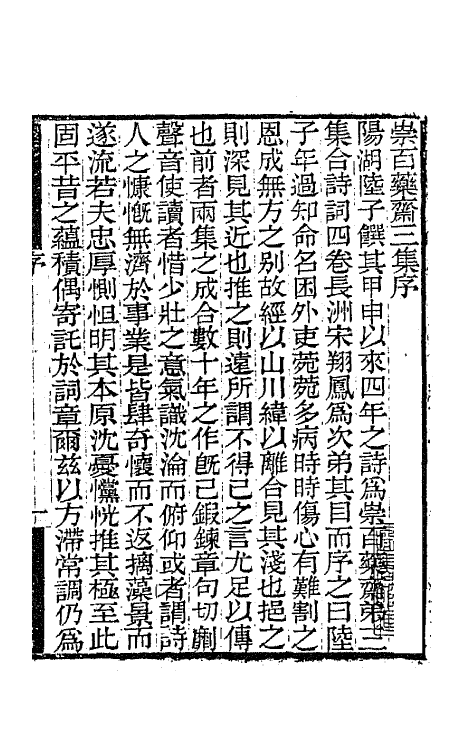 崇百藥齋三集序
陽湖陸子饌其甲申以來四年之詩爲崇百藥齋弟三
集合詩詞四卷長洲宋翔鳳爲次弟其目而序之曰陸
子年過知命名困外吏菀菀多病時時傷心有難割之
恩成無方之别故經以山川緯以離合見其淺也挹之
則深見其近也推之則遠所謂不得已之言尤足以傳
也前者兩集之成合數十年之作旣已鍜鍊章句切劘
聲音使讀者惜少壯之意氣識沈淪而俯仰或者謂詩
人之慷慨無濟於事業是皆肆奇懷而不返摛藻景而
遂流若夫忠厚惻怛明其本原沈憂戃怳推其極至此
固平昔之蘊積偶寄託於詞章爾茲以方滯常調仍爲
序
一